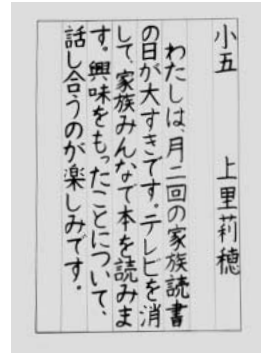 小五 上里莉穂
わたしは、月二回の家族読書
の日が大すきです。テレビを消
して、家族みんなで本を読みま
す。興味をもったことについて、
話し合うのが楽しみです。